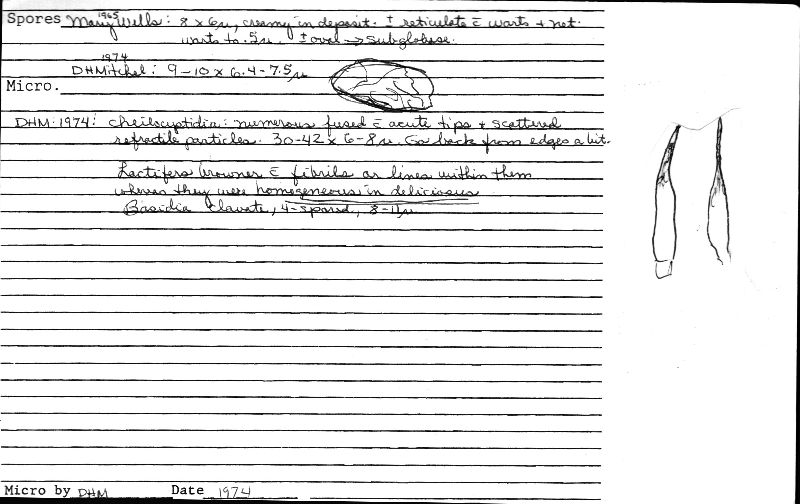 1965
Spores Mary Wells: 8 x 6μ, creamy in deposit. ± reticulate c̄ warts + not.
warts to .5μ. ± oval → subglobose.
1974
DHMitchel: 9-10 x 6.4-7.5μ
Micro.
DHM. 1974: cheilocyptidia: numerous fused c̄ acute tips + scattered
refractile particles. 30-42 x 6-8μ. Go back from edges a bit.
Lactifers browner c̄ fibrils or lines within them
whereas they were homogeneous in deliciosus
Basidia clavate, 4-spored, 8-11μ
Micro by DHM Date 1974